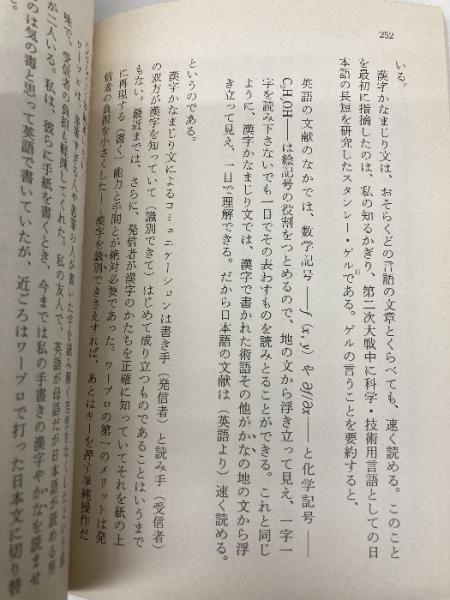 252
いる。
漢字かなまじり文は、おそらくどの言語の文章とくらべても、速く読める。このこと
を最初に指摘したのは、私の知るかぎり、第二次大戦中に科学・技術用言語としての日
本語の長短を研究したスタンレー・ゲルである。ゲルの言うことを要約すると、
英語の文献のなかでは、数学記号——f(x, y) や ∂f/∂x——と化学記号——
C₂H₅OH——は絵記号の役割をつとめるので、地の文から浮き立って見え、一字一
字を読み下さないでも一目でその表わすものを読みとることができる。これと同じ
ように、漢字かなまじり文では、漢字で書かれた術語その他がかなの地の文から浮
き立って見え、一目で理解できる。だから日本語の文献は（英語より）速く読める。
というのである。
漢字かなまじり文によるコミュニケーションは書き手（発信者）と読み手（受信者）
の双方が漢字を知っていて（識別できて）はじめて成り立つものであることはいうまで
もない。最近までは、さらに、発信者が漢字のかたちを正確に知っていてそれを紙の上
に再現する（書く）能力と手間とが絶対必要であった。ワープロの第一のメリットは発
信者の負担を小さくした——漢字を識別できさえすれば、あとはキーを押す単純操作だ
ワープロは、
味で、受信者の負担も軽減してくれた。私の友人で、英語が母語だが日本語が読める男
が二人いる。私は、彼らに手紙を書くとき、今までは私の手書きの漢字やかなを読ませ
るのは気の毒と思って英語で書いていたが、近ごろはワープロで打った日本文に切り替